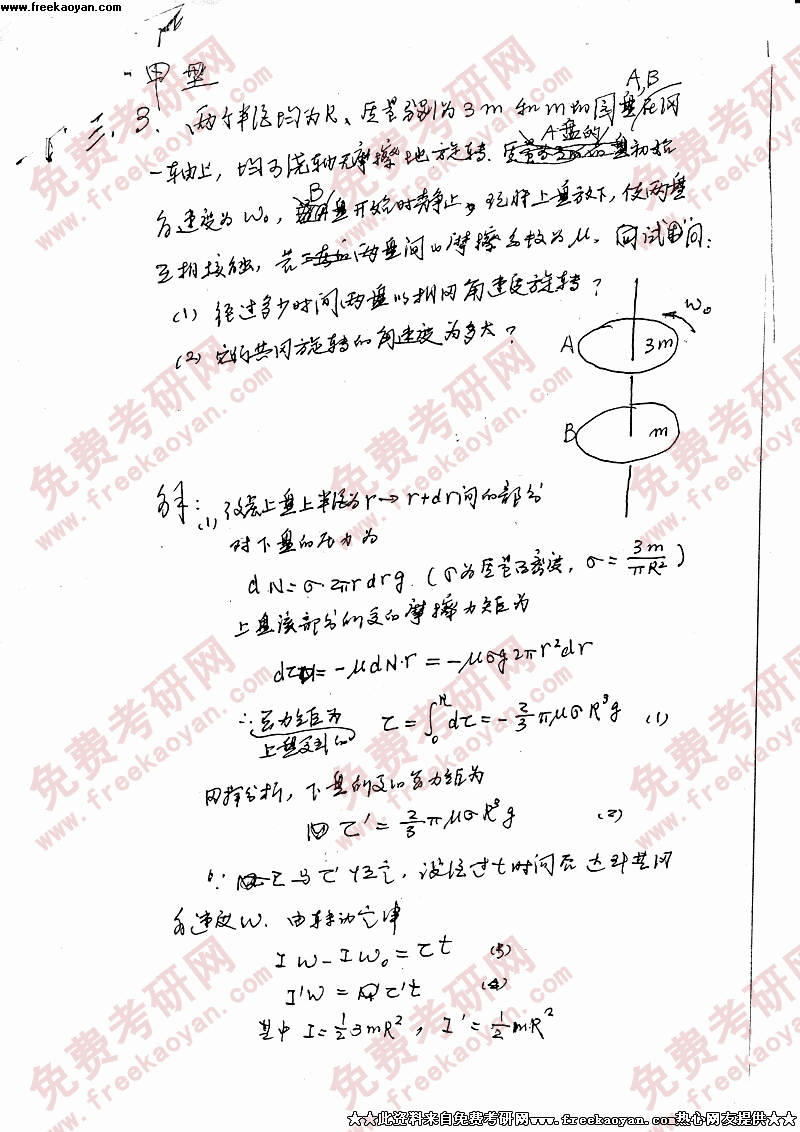 www.freekaoyan.com
甲型
三、3、两个半径均为R、质量分别为3m和m的圆盘A,B在同
一轴上,均可绕轴无摩擦地旋转.A盘的初始
角速度为ω₀,B盘开始时静止,现将上盘放下,使两盘
互相接触,若两盘间的摩擦系数为μ。试问:
(1) 经过多少时间两盘以相同角速度旋转?
(2) 它们共同旋转的角速度为多大?
ω₀
A 3m
B m
解:(1) 设上盘上半径为r→r+dr间的部分
对下盘的压力为
dN=σ·2πrdrg.(σ为质量面密度,σ=3m/πR²)
上盘该部分所受的摩擦力矩为
dτ=-μdN·r=-μσg2πr²dr
∴上盘受到的总力矩为 τ=∫₀ᴿdτ=-2/3πμσR³g (1)
同样分析,下盘所受的总力矩为
τ'=2/3πμσR³g (2)
∵τ与τ'恒定,设经过t时间后达到共同
角速度ω.由转动定律
Iω-Iω₀=τt (3)
I'ω=τ't (4)
其中 I=1/2 3mR², I'=1/2mR²
免费考研网
www.freekaoyan.com
★★此资料来自免费考研网www.freekaoyan.com热心网友提供★★